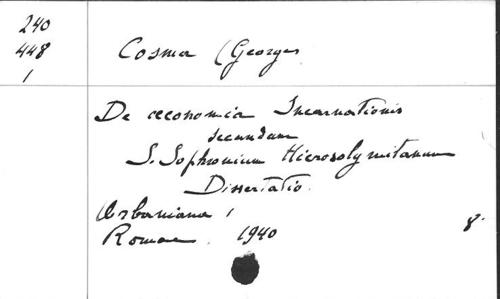 240
448
1
Cosma (Georges
De œconomia Incarnationis
secundum
S. Sophronium Hierosolymitanum
Dissertatio.
Urbaniana,
Romae. 1940 8°